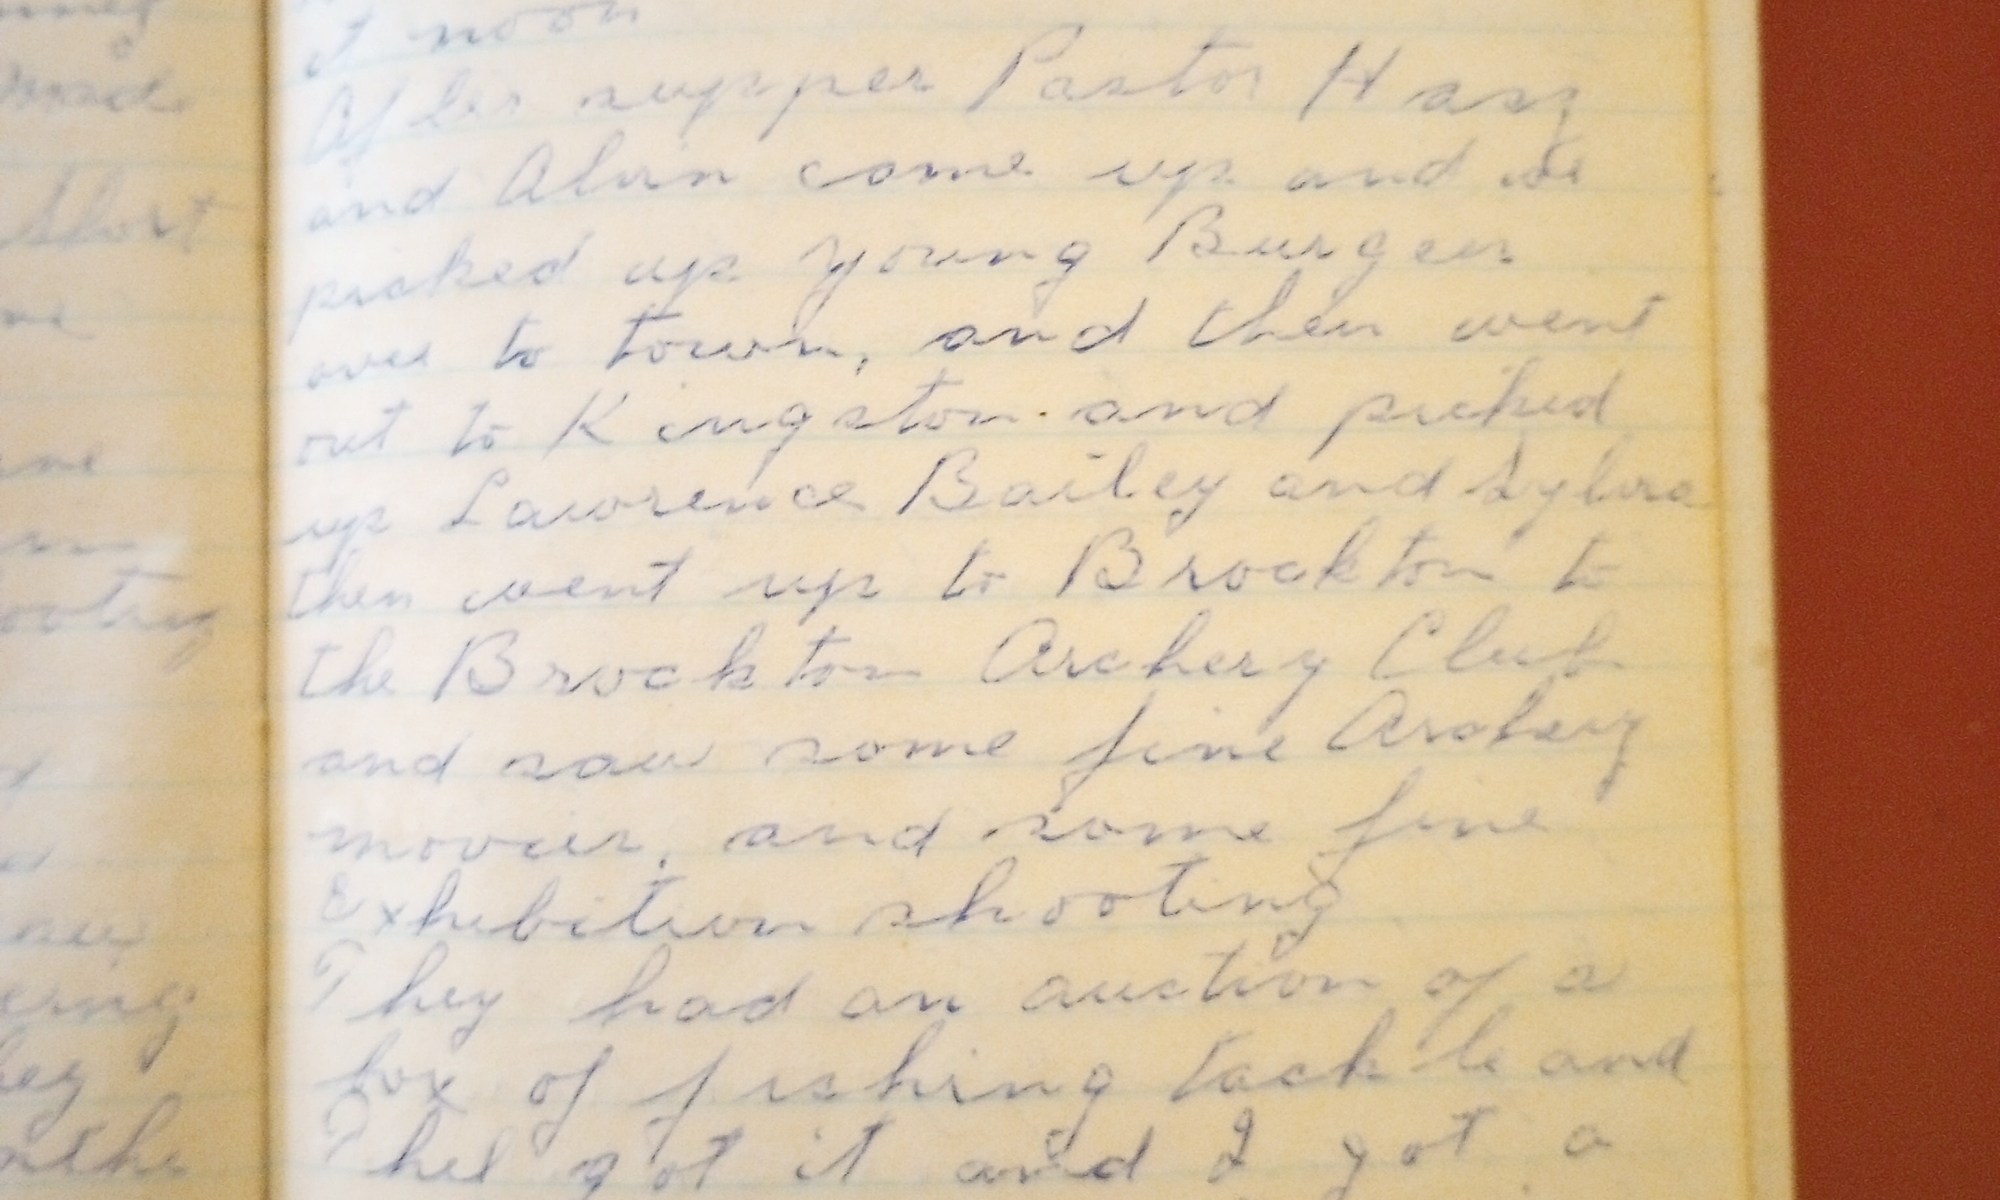 at noon
After supper Pastor Hasz
and Alvin come up and we
picked up young Burgess
over to town, and then went
out to Kingston and picked
up Lawrence Bailey and Sylvia
then went up to Brockton to
the Brockton Archery Club
and saw some fine Archery
movies, and some fine
Exhibition shooting
They had an auction of a
box of fishing tackle and
Phil got it and I got a